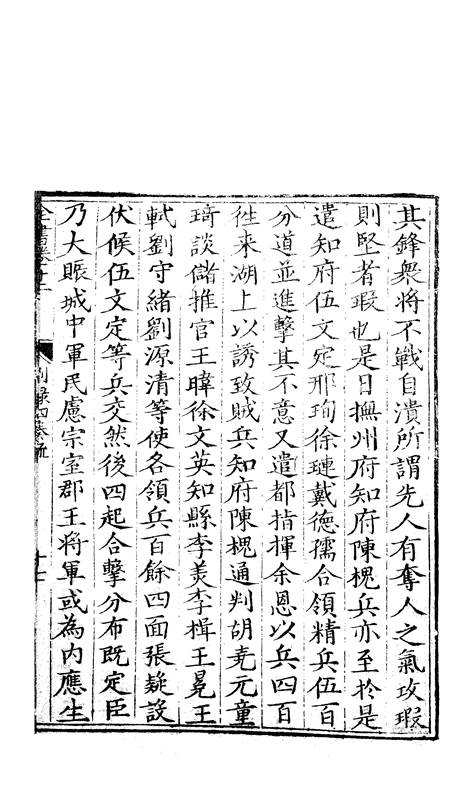 其鋒衆將不戰自潰所謂先人有奪人之氣攻瑕
則堅者瑕也是日撫州府知府陳槐兵亦至於是
遣知府伍文定邢珣徐璉戴德孺合領精兵伍百
分道並進擊其不意又遣都指揮余恩以兵四百
徃来湖上以誘致賊兵知府陳槐通判胡尭元童
琦談儲推官王暐徐文英知縣李美李楫王冕王
軾劉守緒劉源清等使各領兵百餘四面張疑設
伏候伍文定等兵交然後四起合擊分布既定臣
乃大賑城中軍民慮宗室郡王將軍或為内應生
全書卷十二
别錄四奏疏